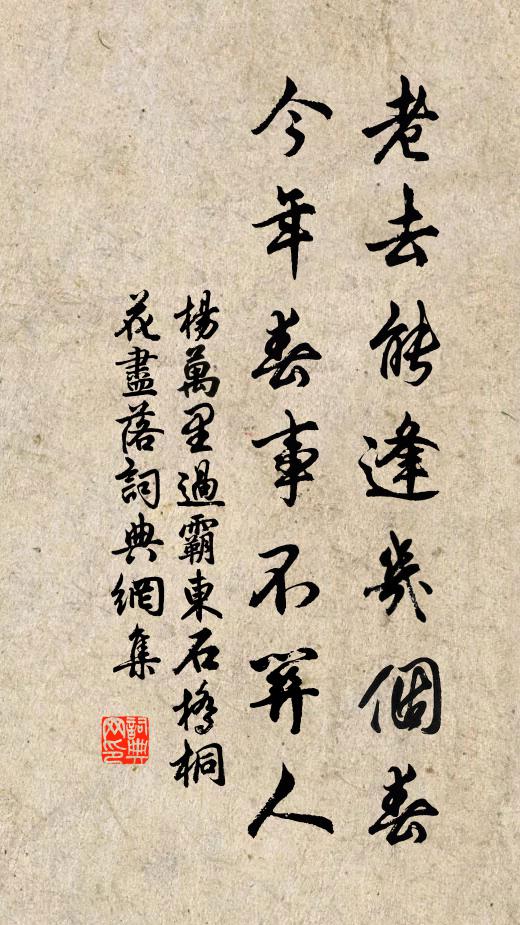 老去能逢幾個春
今年春事不關人
楊萬里過霸東石橋桐
花盡落詞典網集
詞典網印